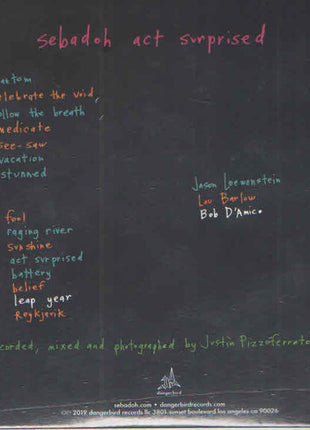 sebadoh act surprised
antom
elebrate the void
ollow the breath
medicate
see-saw
vacation
stunned
Jason Loewenstein
Lou Barlow
Bob D'Amico
fool
raging river
sunshine
act surprised
battery
belief
leap year
Reykjavik
corded, mixed and photographed by Justin Pizzoferrato
dangerbird
sebadoh.com • dangerbirdrecords.com
©℗ 2019 dangerbird records llc 3801 sunset boulevard los angeles ca 90026